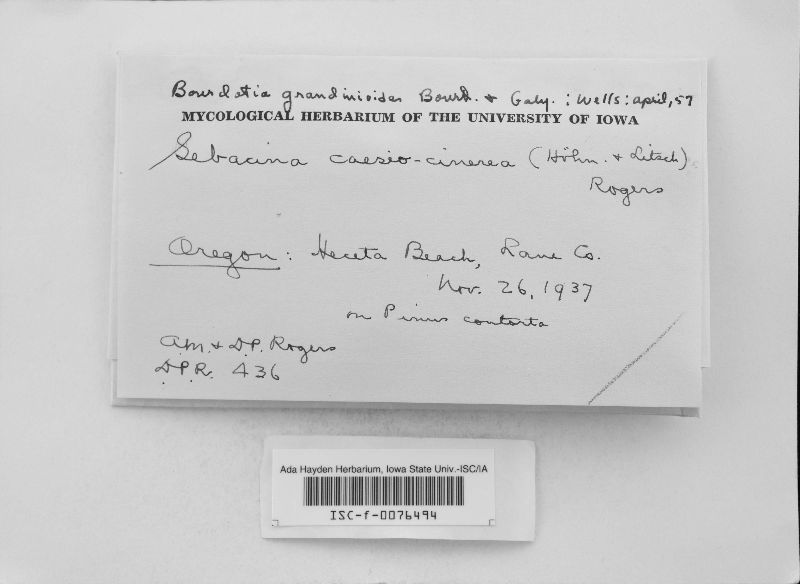 Bourdotia grandinioides Bourd. & Galz. : Wells : april, 57
MYCOLOGICAL HERBARIUM OF THE UNIVERSITY OF IOWA
Sebacina caesio-cinerea (Höhn. & Litsch)
Rogers
Oregon : Heceta Beach, Lane Co.
Nov. 26, 1937
on Pinus contorta
A.M. & D.P. Rogers
D.P.R. 436
Ada Hayden Herbarium, Iowa State Univ.-ISC/IA
ISC-f-0076494